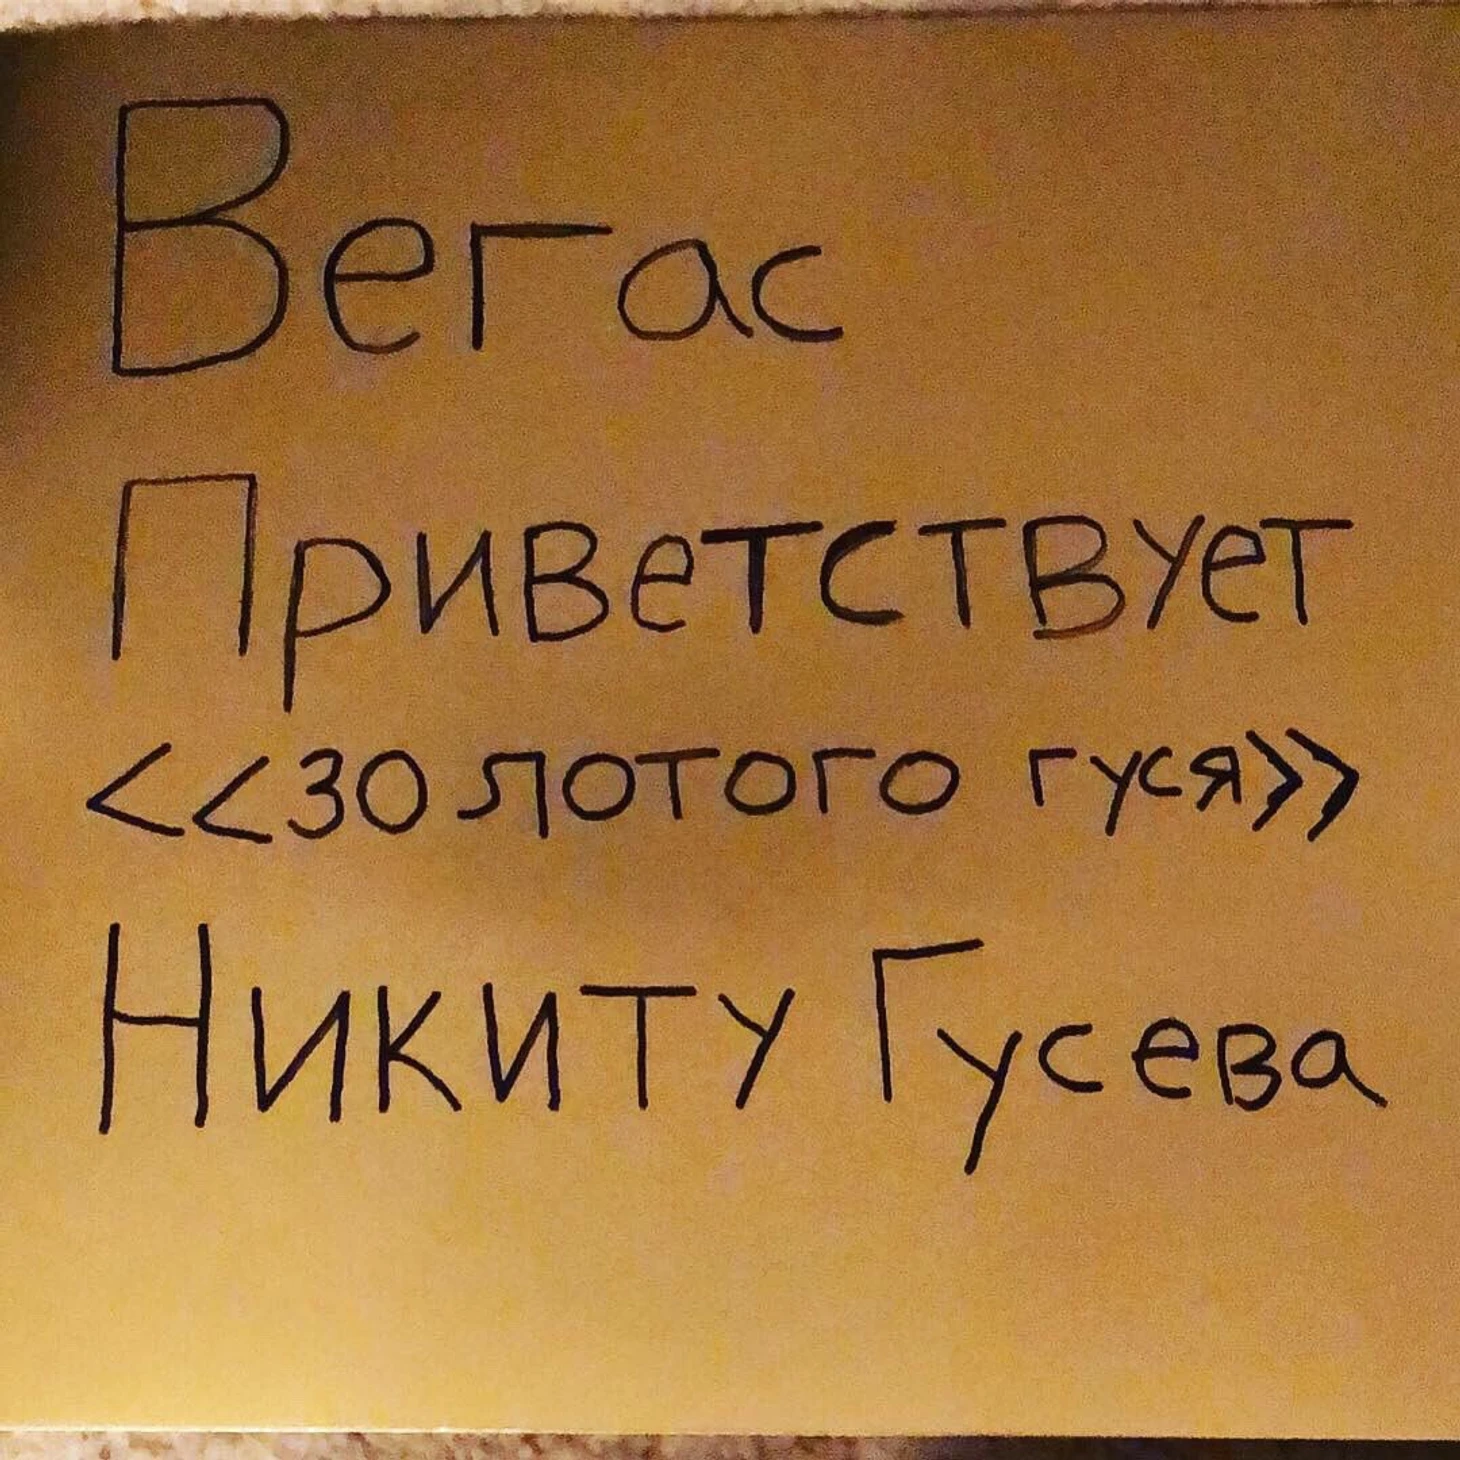 Вегас
Приветствует
<<золотого гуся>>
Никиту Гусева